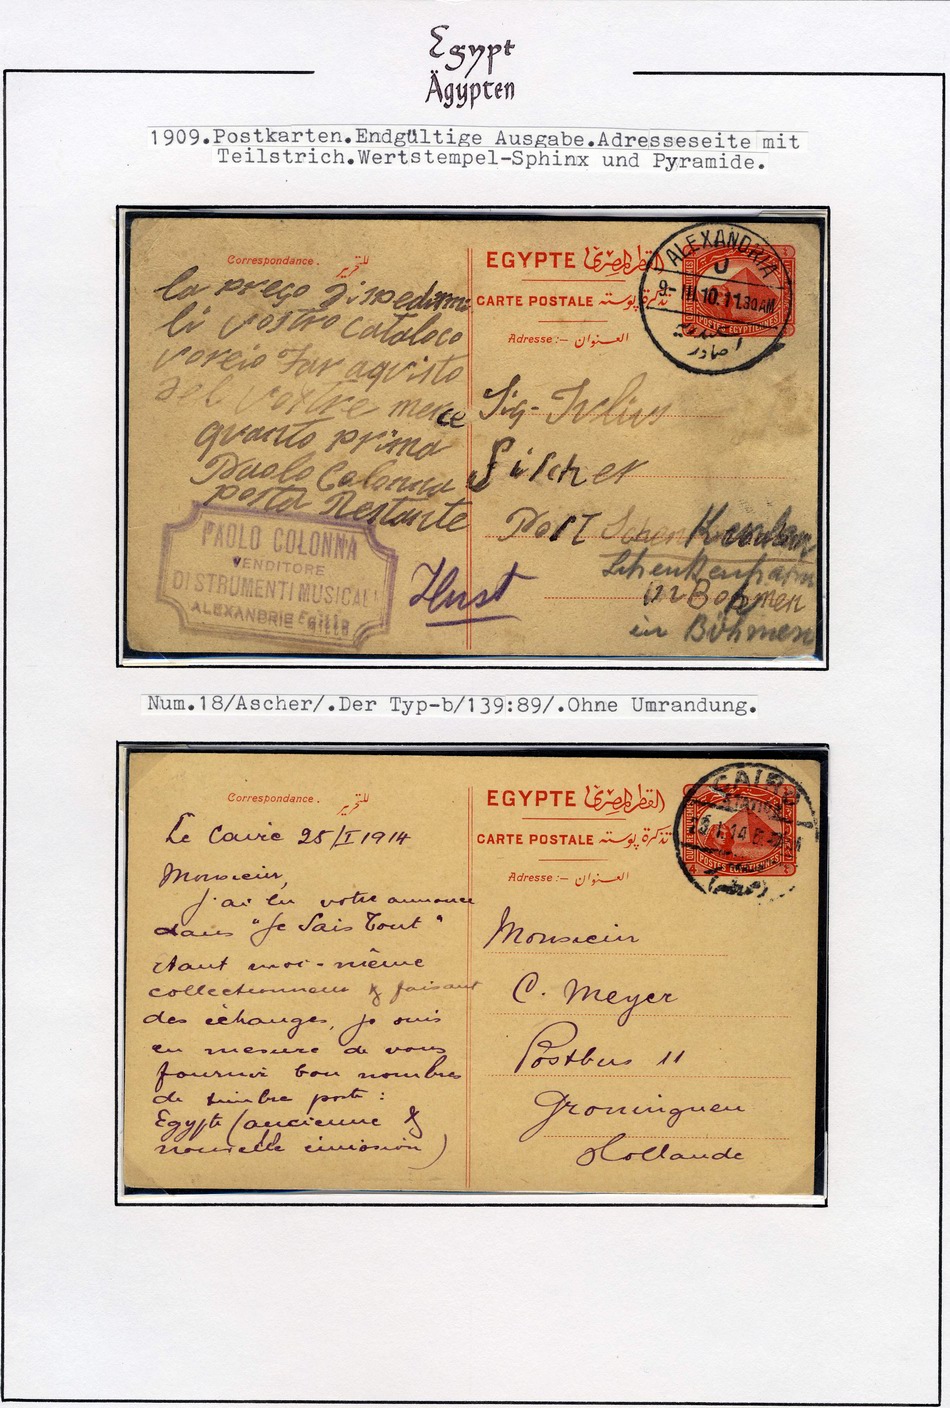 Egypt
Ägypten
1909.Postkarten.Endgültige Ausgabe.Adresseseite mit
Teilstrich.Wertstempel-Sphinx und Pyramide.
Correspondance. للتحرير
EGYPTE القطر المصرى
CARTE POSTALE تذكرة بوسته
Adresse:- العنوان
ALEXANDRIA
U
9-III.10.11.30AM
صادر
POSTES EGYPTIENNES
la prego di spedirmi
li vostro cataloco
voreio far aqvisto
del vostre merce
quanto prima
Paolo Colonna
posta Restante
PAOLO COLONNA
VENDITORE
DI STRUMENTI MUSICALI
ALEXANDRIE
Sig- Julius
Fischer
Post
Schenkenhann
in Bohmen
in Böhmen
Num.18/Ascher/.Der Typ-b/139:89/.Ohne Umrandung.
Correspondance. للتحرير
EGYPTE القطر المصرى
CARTE POSTALE تذكرة بوسته
Adresse:- العنوان
CAIRO
Le Caire 25/I 1914
Monsieur,
j'ai lu votre annonce
dans "Je Sais Tout"
étant moi-même
collectionneur & faisant
des échanges, je suis
en mesure de vous
fournir bon nombres
de timbre poste:
Egypte (ancienne &
nouvelle émission)
Monsieur
C. Meyer
Postbus 11
Groninguen
Hollande